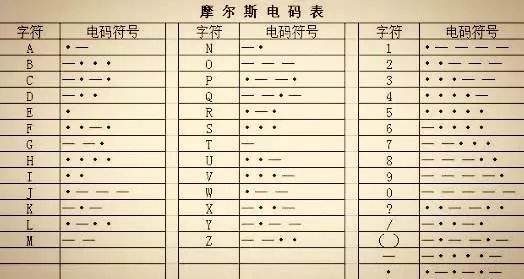 摩尔斯电码表
字符 电码符号 字符 电码符号 字符 电码符号
A • — N — • 1 • — — — —
B — • • • O — — — 2 • • — — —
C — • — • P • — — • 3 • • • — —
D — • • Q — — • — 4 • • • • —
E • R • — • 5 • • • • •
F • • — • S • • • 6 — • • • •
G — — • T — 7 — — • • •
H • • • • U • • — 8 — — — • •
I • • V • • • — 9 — — — — •
J • — — — W • — — 0 — — — — —
K — • — X — • • — ? • • — — • •
L • — • • Y — • — — / — • • — •
M — — Z — — • • ( ) — • — — • —
— — • • • • —
• • — • — • —